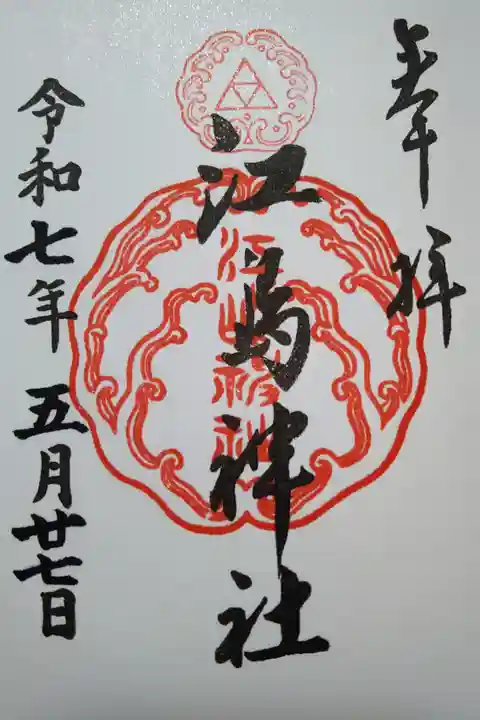 奉拝
江島神社
江島神社
令和七年 五月廿七日